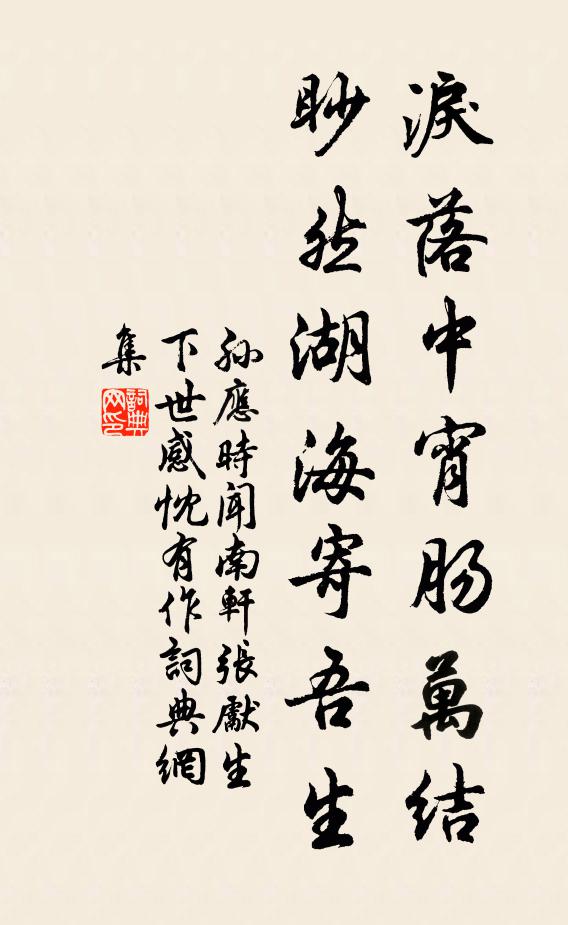 淚落中宵肠萬结
眇然湖海寄吾生
孙應時聞南軒張獻生
下世感忱有作詞典網
集
詞典
网印